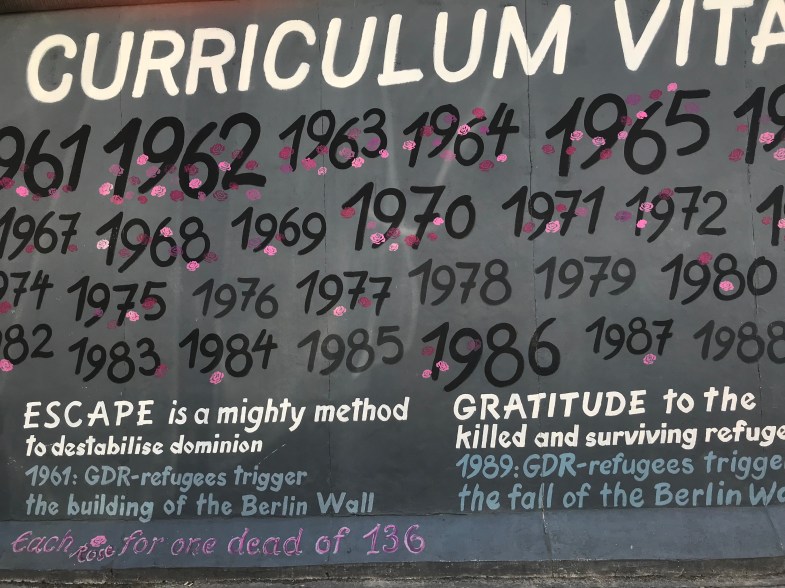 CURRICULUM VITA
961 1962 1963 1964 1965 19
1967 1968 1969 1970 1971 1972 1
974 1975 1976 1977 1978 1979 1980
982 1983 1984 1985 1986 1987 1988
ESCAPE is a mighty method
to destabilise dominion
1961: GDR-refugees trigger
the building of the Berlin Wall
GRATITUDE to the
killed and surviving refuge
1989: GDR-refugees trigge
the fall of the Berlin Wa
Each Rose for one dead of 136